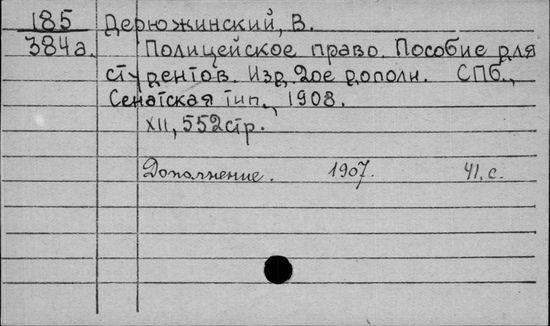 185 Дерюжинский, В.
384а. Полицейское право. Пособие для
студентов. Изд. 2ое дополн. СПб.,
Сенатская тип., 1908.
XII, 552стр.
Дополнение. 1907. 41. с.